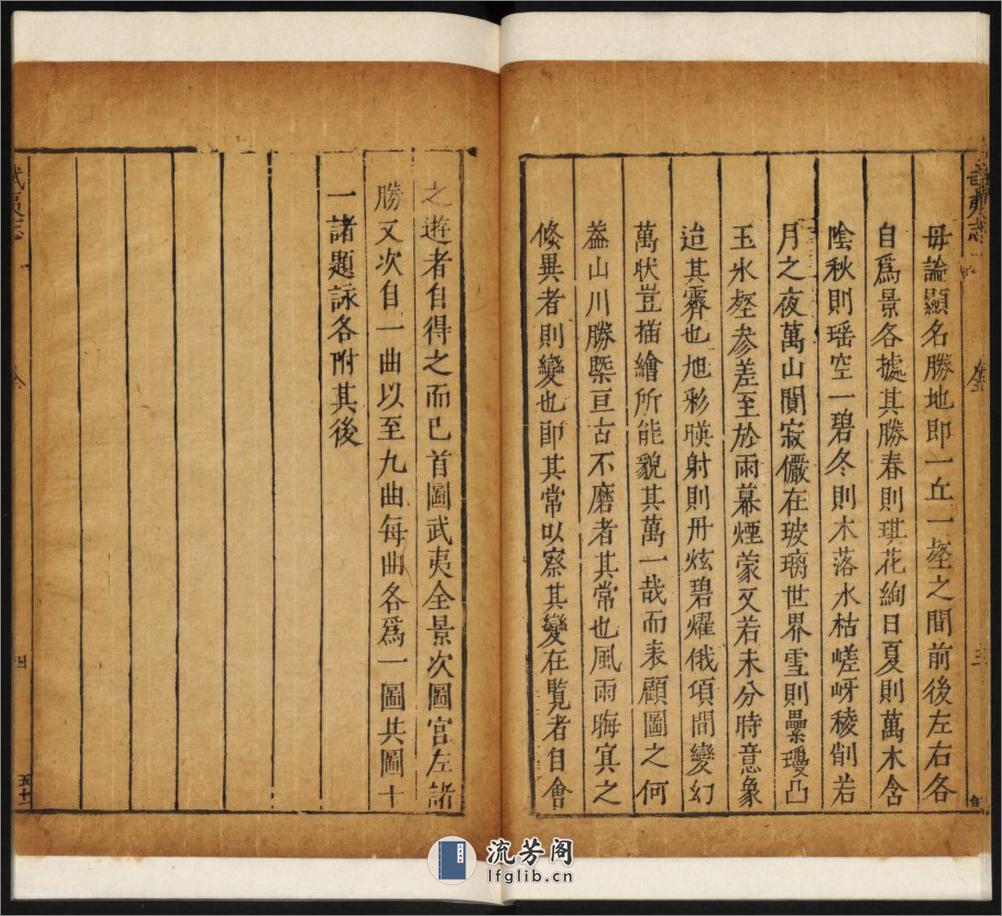 毋論顯名勝地即一丘一壑之間前後左右各
自爲景各據其勝春則琪花絢日夏則萬木含
陰秋則瑶空一碧冬則木落水枯嵯岈稜削若
月之夜萬山閴寂儼在玻璃世界雪則壘瓊凸
玉氷壑參差至於雨幕煙蒙又若未分時意象
迨其霽也旭彩暎射則丹炫碧燿俄頃間變幻
萬狀豈描繪所能貌其萬一哉而衷顧圖之何
葢山川勝槩亘古不磨者其常也風雨晦冥之
倐異者則變也即其常以察其變在覽者自會
之遊者自得之而已首圖武夷全景次圖宫左諸
勝又次自一曲以至九曲每曲各爲一圖其圖十
一諸題詠各附其後
武夷志
四
五十
三
流芳阁
lfglib.cn